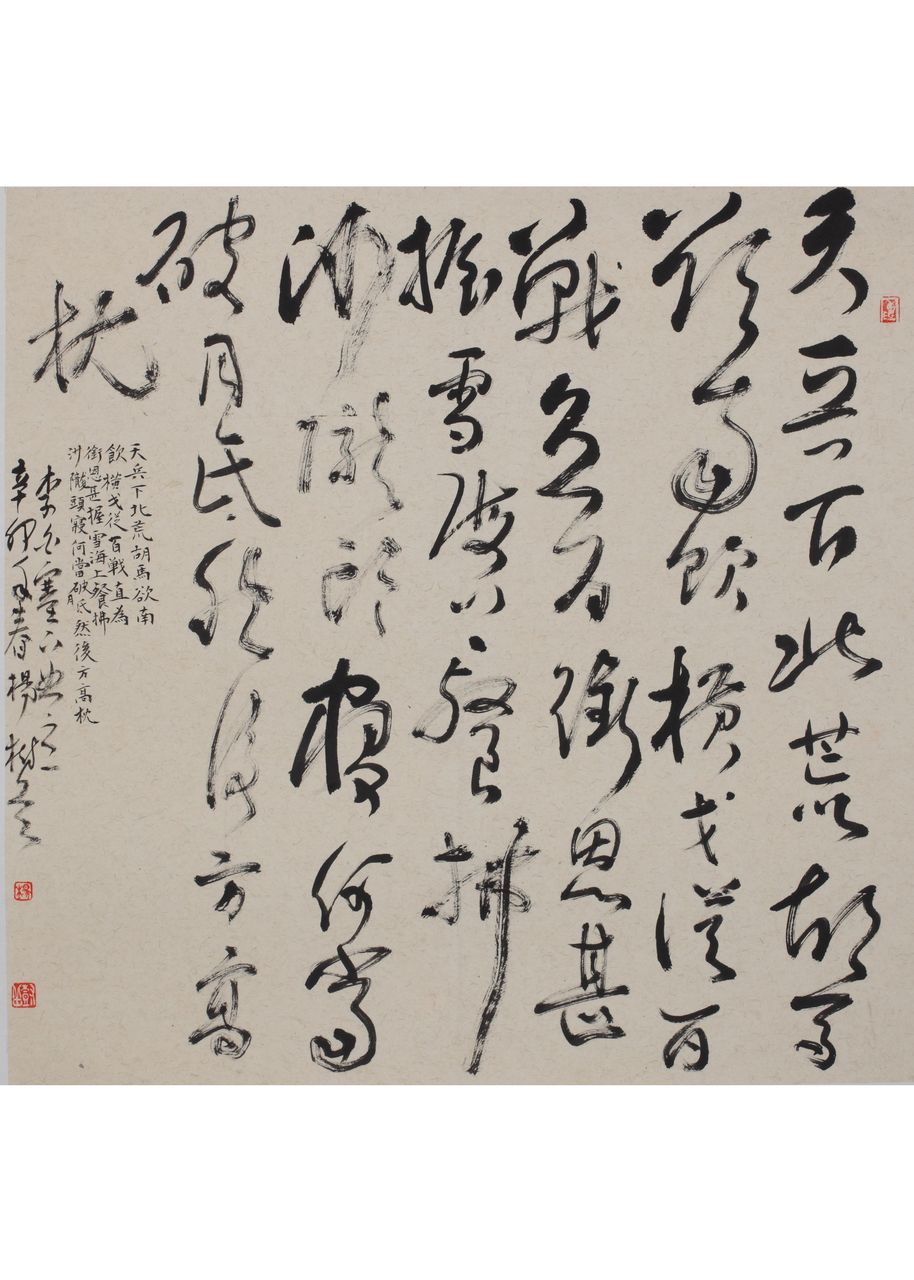 天兵下北荒胡馬
欲南飲橫戈從百
戰直為銜恩甚
握雪海上餐拂
沙隴頭寢何當
破月氏然後方高
枕
天兵下北荒胡馬欲南
飲橫戈從百戰直為
銜恩甚握雪海上餐拂
沙隴頭寢何當破月氏然後方高枕
李白塞下曲
辛卯年春楊樹